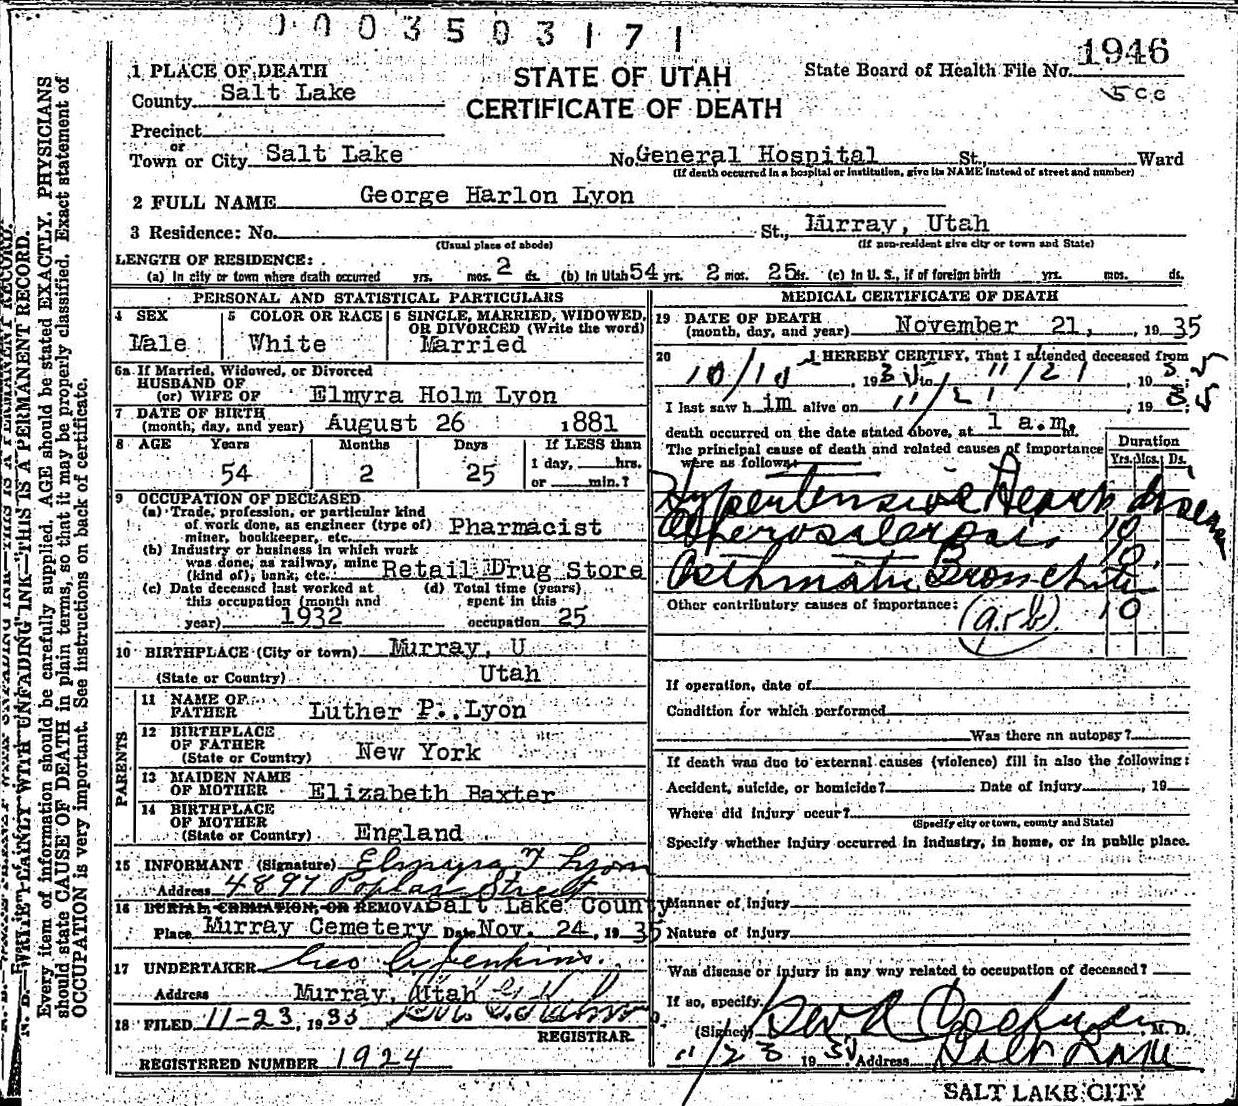 0 0 0 0 3 5 0 3 1 7 1
1946
1 PLACE OF DEATH
STATE OF UTAH
State Board of Health File No.
County Salt Lake
CERTIFICATE OF DEATH
5cc
Precinct
or
Town or City Salt Lake No. General Hospital St., Ward
(If death occurred in a hospital or institution, give its NAME instead of street and number)
2 FULL NAME George Harlon Lyon
3 Residence: No. St., Murray, Utah
(Usual place of abode) (If non-resident give city or town and State)
LENGTH OF RESIDENCE:
(a) In city or town where death occurred yrs. mos. 2 ds. (b) In Utah 54 yrs. 2 mos. 25 ds. (c) In U. S., if of foreign birth yrs. mos. ds.
PERSONAL AND STATISTICAL PARTICULARS
4 SEX
Male
5 COLOR OR RACE
White
6 SINGLE, MARRIED, WIDOWED,
OR DIVORCED (Write the word)
Married
6a If Married, Widowed, or Divorced
HUSBAND OF
(or) WIFE OF Elmyra Holm Lyon
7 DATE OF BIRTH
(month, day, and year) August 26 1881
8 AGE Years Months Days If LESS than
54 2 25 1 day, hrs.
or min.?
9 OCCUPATION OF DECEASED
(a) Trade, profession, or particular kind
of work done, as engineer (type of)
miner, bookkeeper, etc. Pharmacist
(b) Industry or business in which work
was done, as railway, mine
(kind of), bank, etc. Retail Drug Store
(c) Date deceased last worked at
this occupation (month and
year) 1932
(d) Total time (years)
spent in this
occupation 25
10 BIRTHPLACE (City or town) Murray, U
(State or Country) Utah
PARENTS
11 NAME OF
FATHER Luther P. Lyon
12 BIRTHPLACE
OF FATHER
(State or Country) New York
13 MAIDEN NAME
OF MOTHER Elizabeth Baxter
14 BIRTHPLACE
OF MOTHER
(State or Country) England
15 INFORMANT (Signature) Elmyra H Lyon
Address 4897 Poplar Street
16 BURIAL, CREMATION, OR REMOVAL Salt Lake County
Place Murray Cemetery Date Nov. 24, 1935
17 UNDERTAKER Geo Jenkins.
Address Murray, Utah
18 FILED 11-23, 1935
REGISTRAR
REGISTERED NUMBER 1924
MEDICAL CERTIFICATE OF DEATH
19 DATE OF DEATH
(month, day, and year) November 21, 1935
20 I HEREBY CERTIFY, That I attended deceased from
10/15, 1935 to 11/21, 1935;
I last saw him alive on 11/21, 1935;
death occurred on the date stated above, at 1 a.m. m.
The principal cause of death and related causes of importance
were as follows:
Duration
Yrs. Mos. Ds.
Hypertensive Heart disease
10
Asthmatic Bronchitis
Other contributory causes of importance: 10
If operation, date of
Condition for which performed
Was there an autopsy?
If death was due to external causes (violence) fill in also the following:
Accident, suicide, or homicide? Date of injury , 19
Where did injury occur?
(Specify city or town, county and State)
Specify whether injury occurred in industry, in home, or in public place.
Manner of injury
Nature of injury
Was disease or injury in any way related to occupation of deceased?
If so, specify
(Signed) M. D.
11/23 1935 Address Salt Lake
SALT LAKE CITY
N. B.—WRITE PLAINLY WITH UNFADING INK—THIS IS A PERMANENT RECORD.
Every item of information should be carefully supplied. AGE should be stated EXACTLY. PHYSICIANS
should state CAUSE OF DEATH in plain terms, so that it may be properly classified. Exact statement of
OCCUPATION is very important. See instructions on back of certificate.